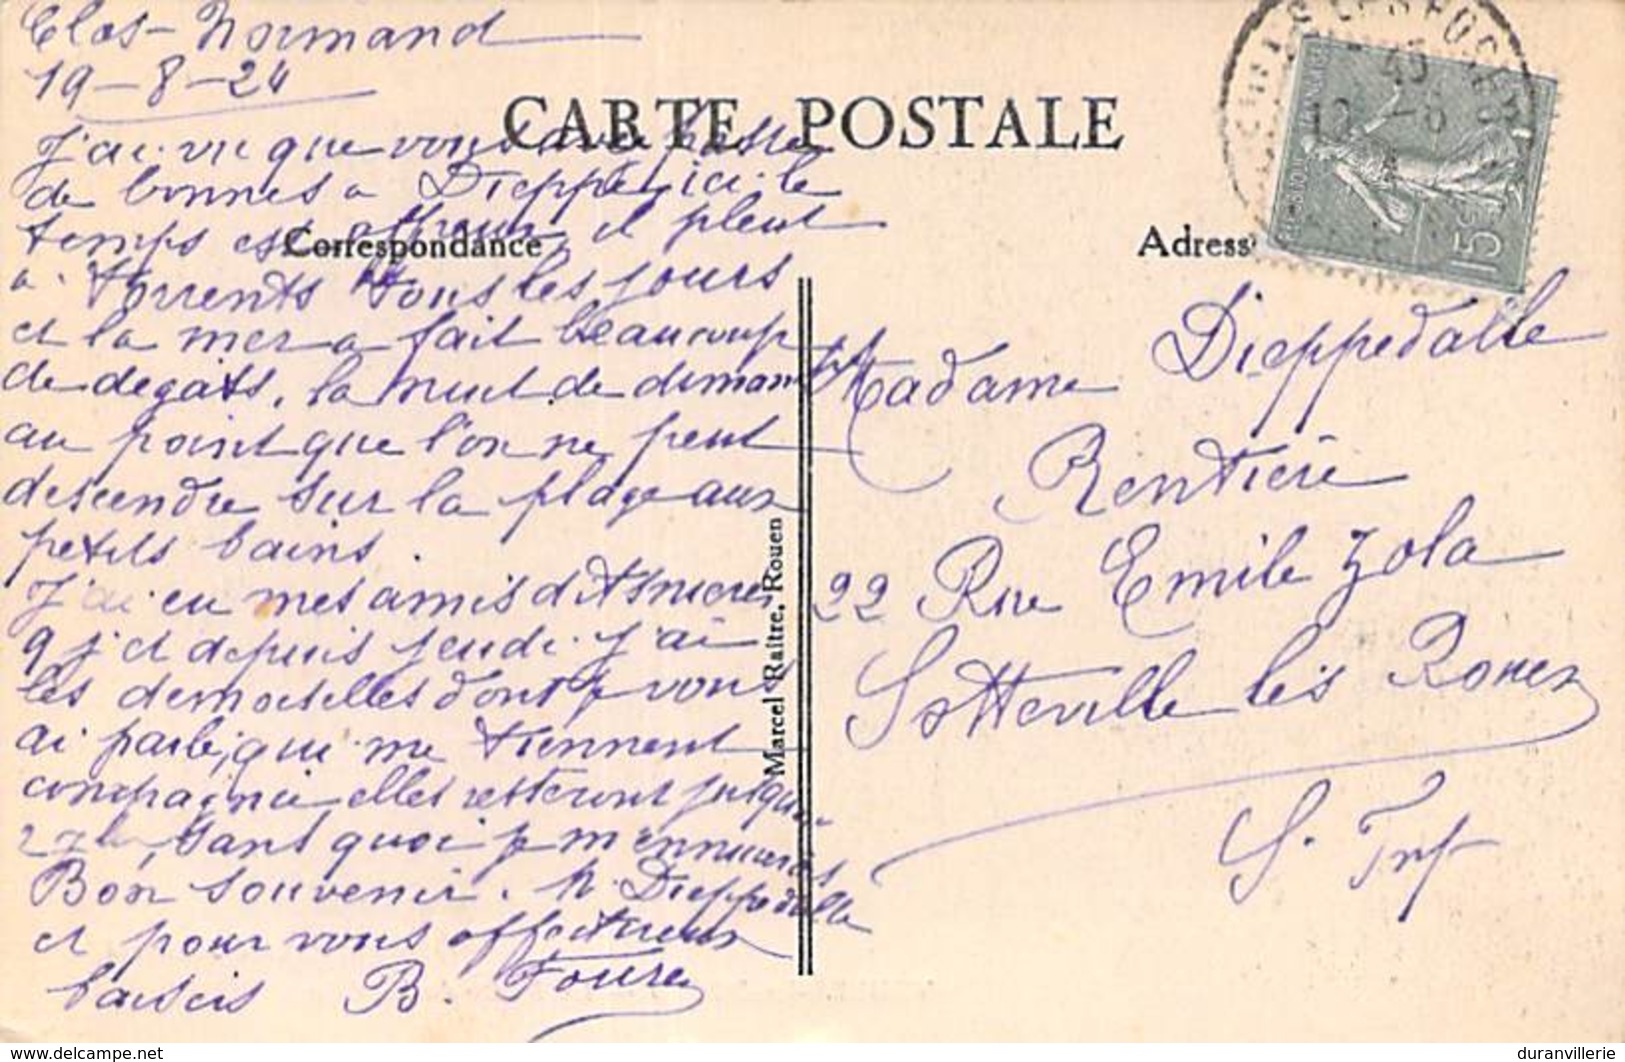 Clos-Normand
19-8-24
CARTE POSTALE
J'ai vu que vous avez passe
de bonnes a Dieppe, ici le
temps est affreux, il pleut
Correspondance
a Torrents tous les jours
et la mer a fait beaucoup
de degats, la nuit de dimanche
au point que l'on ne peut
descendre sur la plage aux
petits bains.
J'ai eu mes amis d'Asnieres
9 j et depuis jeudi j'ai
les demoiselles dont je vous
ai parle, qui me tiennent
compagnie elles resteront jusqu'au
27 sans quoi je m'ennuierais
Bon souvenir. M. Dieppedalle
et pour vous affectueux
baisers B. Foure
Marcel Raître, Rouen
Adress
15c
Madame Dieppedalle
Rentière
22 Rue Emile Zola
Sotteville lès Rouen
S. Inf
© duranvillerie